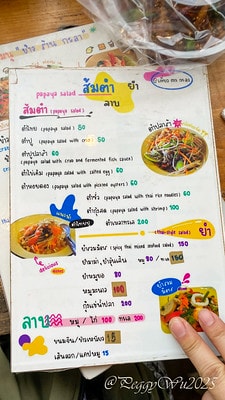 papaya salad ส้มตำ ยำ
ลาบ
ส้มตำ (papaya salad)
ตำไทย (papaya salad) 50
ตำปู (papaya salad with crab) 50
ตำปูปลาร้า 60
(papaya salad with crab and fermented fish sauce)
ตำไข่เค็ม (papaya salad with salted egg) 60
ตำหอยดอง (papaya salad with pickled oysters) 60
ตำซั่ว (papaya salad with thai rice noodles)
ตำกุ้งสด (papaya salad with shrimp) 100
ตำทะเลกรอบ 200
(thai-style salad) ยำ
ยำรวมมิตร (spicy thai mixed seafood salad) 150
ยำมาม่า, ยำวุ้นเส้น หมู 80 / ทะเล 150
ยำหมูยอ 80
หมูมะนาว 100
กุ้งแช่น้ำปลา 200
ลาบ หมู / ไก่ 100 ทะเล 200
ขนมจีน/ข้าวเหนียว 15
เส้นลวก/แคปหมู 15
@PeggyWu2025